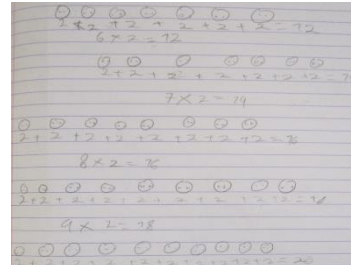 2 + 2 + 2 + 2 + 2 + 2 = 12
6 × 2 = 12
2 + 2 + 2 + 2 + 2 + 2 + 2 =
7 × 2 = 14
2 + 2 + 2 + 2 + 2 + 2 + 2 + 2 = 16
8 × 2 = 16
2 + 2 + 2 + 2 + 2 + 2 + 2 + 2 + 2 = 18
9 × 2 = 18
2 + 2 + 2 + 2 + 2 + 2 + 2 + 2 + 2 + 2 = 20